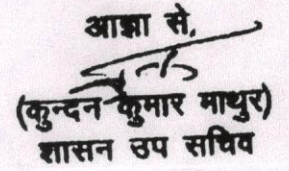 आज्ञा से,
(कुन्दन कुमार माथुर)
शासन उप सचिव